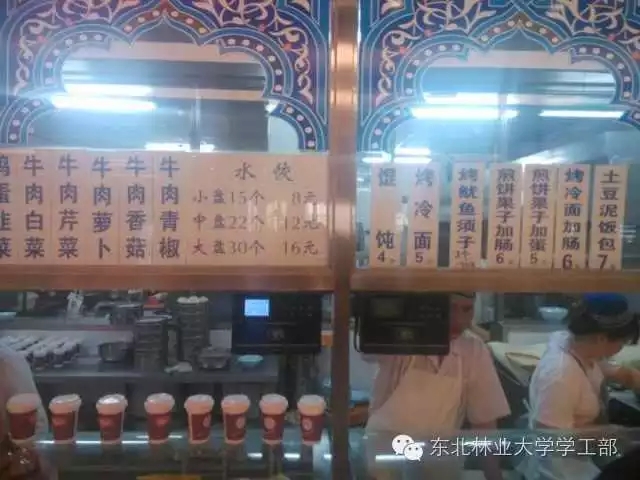 鸡蛋韭菜
牛肉白菜
牛肉芹菜
牛肉萝卜
牛肉香菇
牛肉青椒
水饺
小盘15个 8元
中盘22个 12元
大盘30个 16元
馄饨4元
烤冷面5元
烤鱿鱼须子
煎饼果子加肠6元
煎饼果子加蛋5元
烤冷面加肠6元
土豆泥饭包7元
东北林业大学学工部